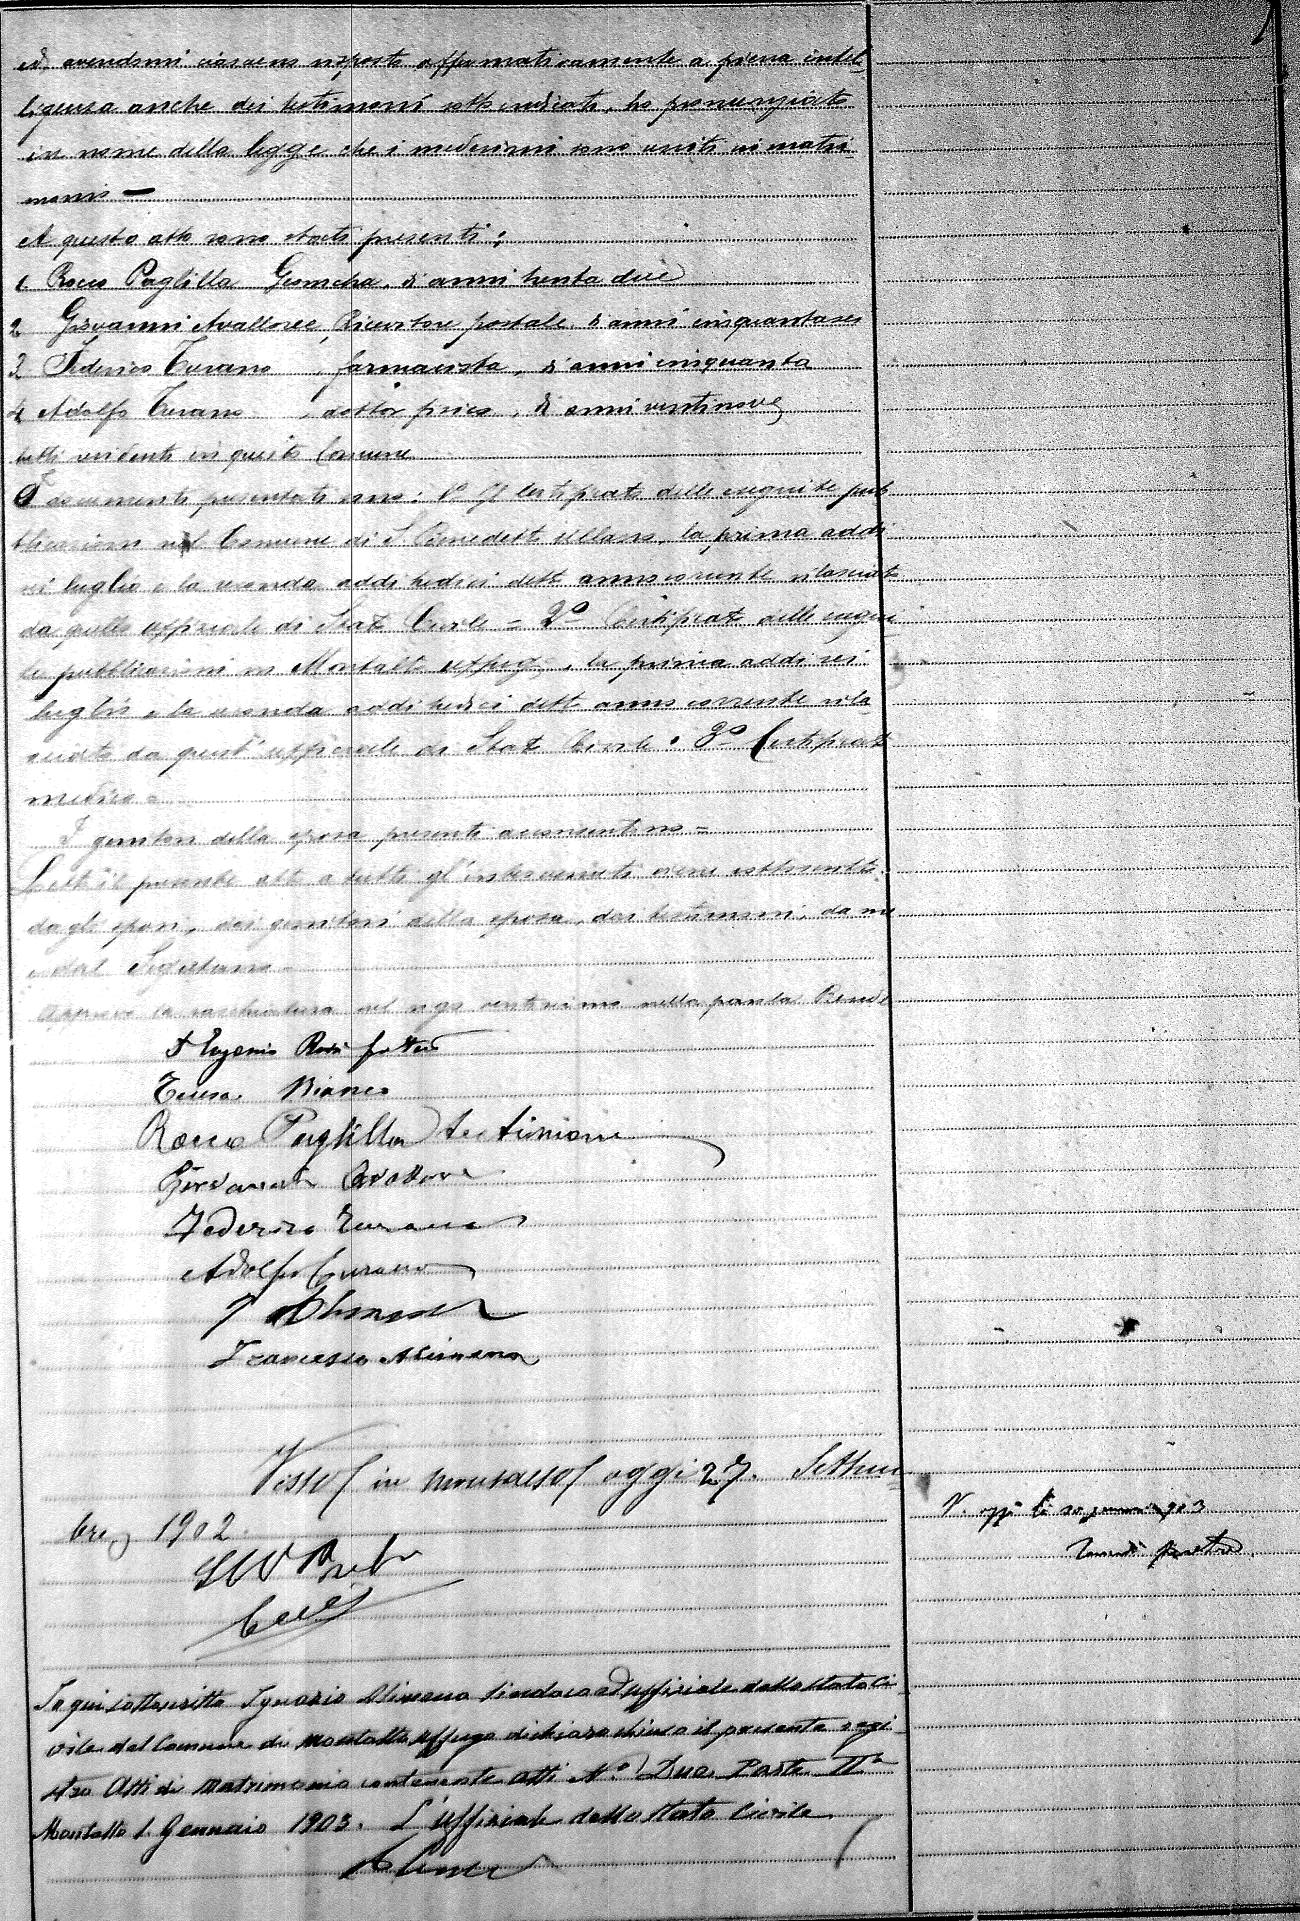 ed avendomi ciascuno risposto affermativamente a piena intel-
ligenza anche dei testimoni sotto indicati, ho pronunziato
in nome della legge che i medesimi sono uniti in matri-
monio —
A questo atto sono stati presenti:
1 Rocco Puglilla Geometra, di anni trenta due
2 Giovanni Avallone, Ricevitore postale, di anni cinquantasei
3 Federico Turano, farmacista, di anni cinquanta
4 Adolfo Turano, dottor fisico, di anni ventinove
tutti residenti in questo Comune
I documenti presentati sono: 1º Il certificato delle eseguite pub
blicazioni nel Comune di S. Benedetto Ullano, la prima addì
sei luglio e la seconda addì tredici dett anno corrente rilasciato
da quello uffiziale di Stato Civile = 2º Certificato delle esegui
te pubblicazioni in Montalto Uffugo, la prima addì sei
luglio e la seconda addì tredici dett anno corrente rila-
sciato da quest' uffiziale di Stato Civile. 3º Certificato
medico =
I genitori della sposa presenti acconsentono =
Letto il presente atto a tutti gl'intervenuti viene sottoscritto
dagli sposi, dai genitori della sposa, dai testimoni, da me
e dal Segretario =
Approvo la raschiatura nel rigo ventesimo nella parola Rende
Eugenio
Teresa Bianco
Rocco Puglilla testimone
Giovanni Avallone
Federico Turano
Adolfo Turano
Francesco Alimena
Visto in Montalto oggi 27. Settem
bre 1902
V. oggi li 20 gennaio 903
Pretore
Io qui sottoscritto Ignazio Alimena Sindaco ed uffiziale dello Stato Ci-
vile del Comune di Montalto Uffugo dichiaro chiuso il presente regi-
stro Atti di Matrimonio contenente atti Nº Due Parte IIª
Montalto 1. Gennaio 1903. L'Uffiziale dello Stato Civile
Alimena